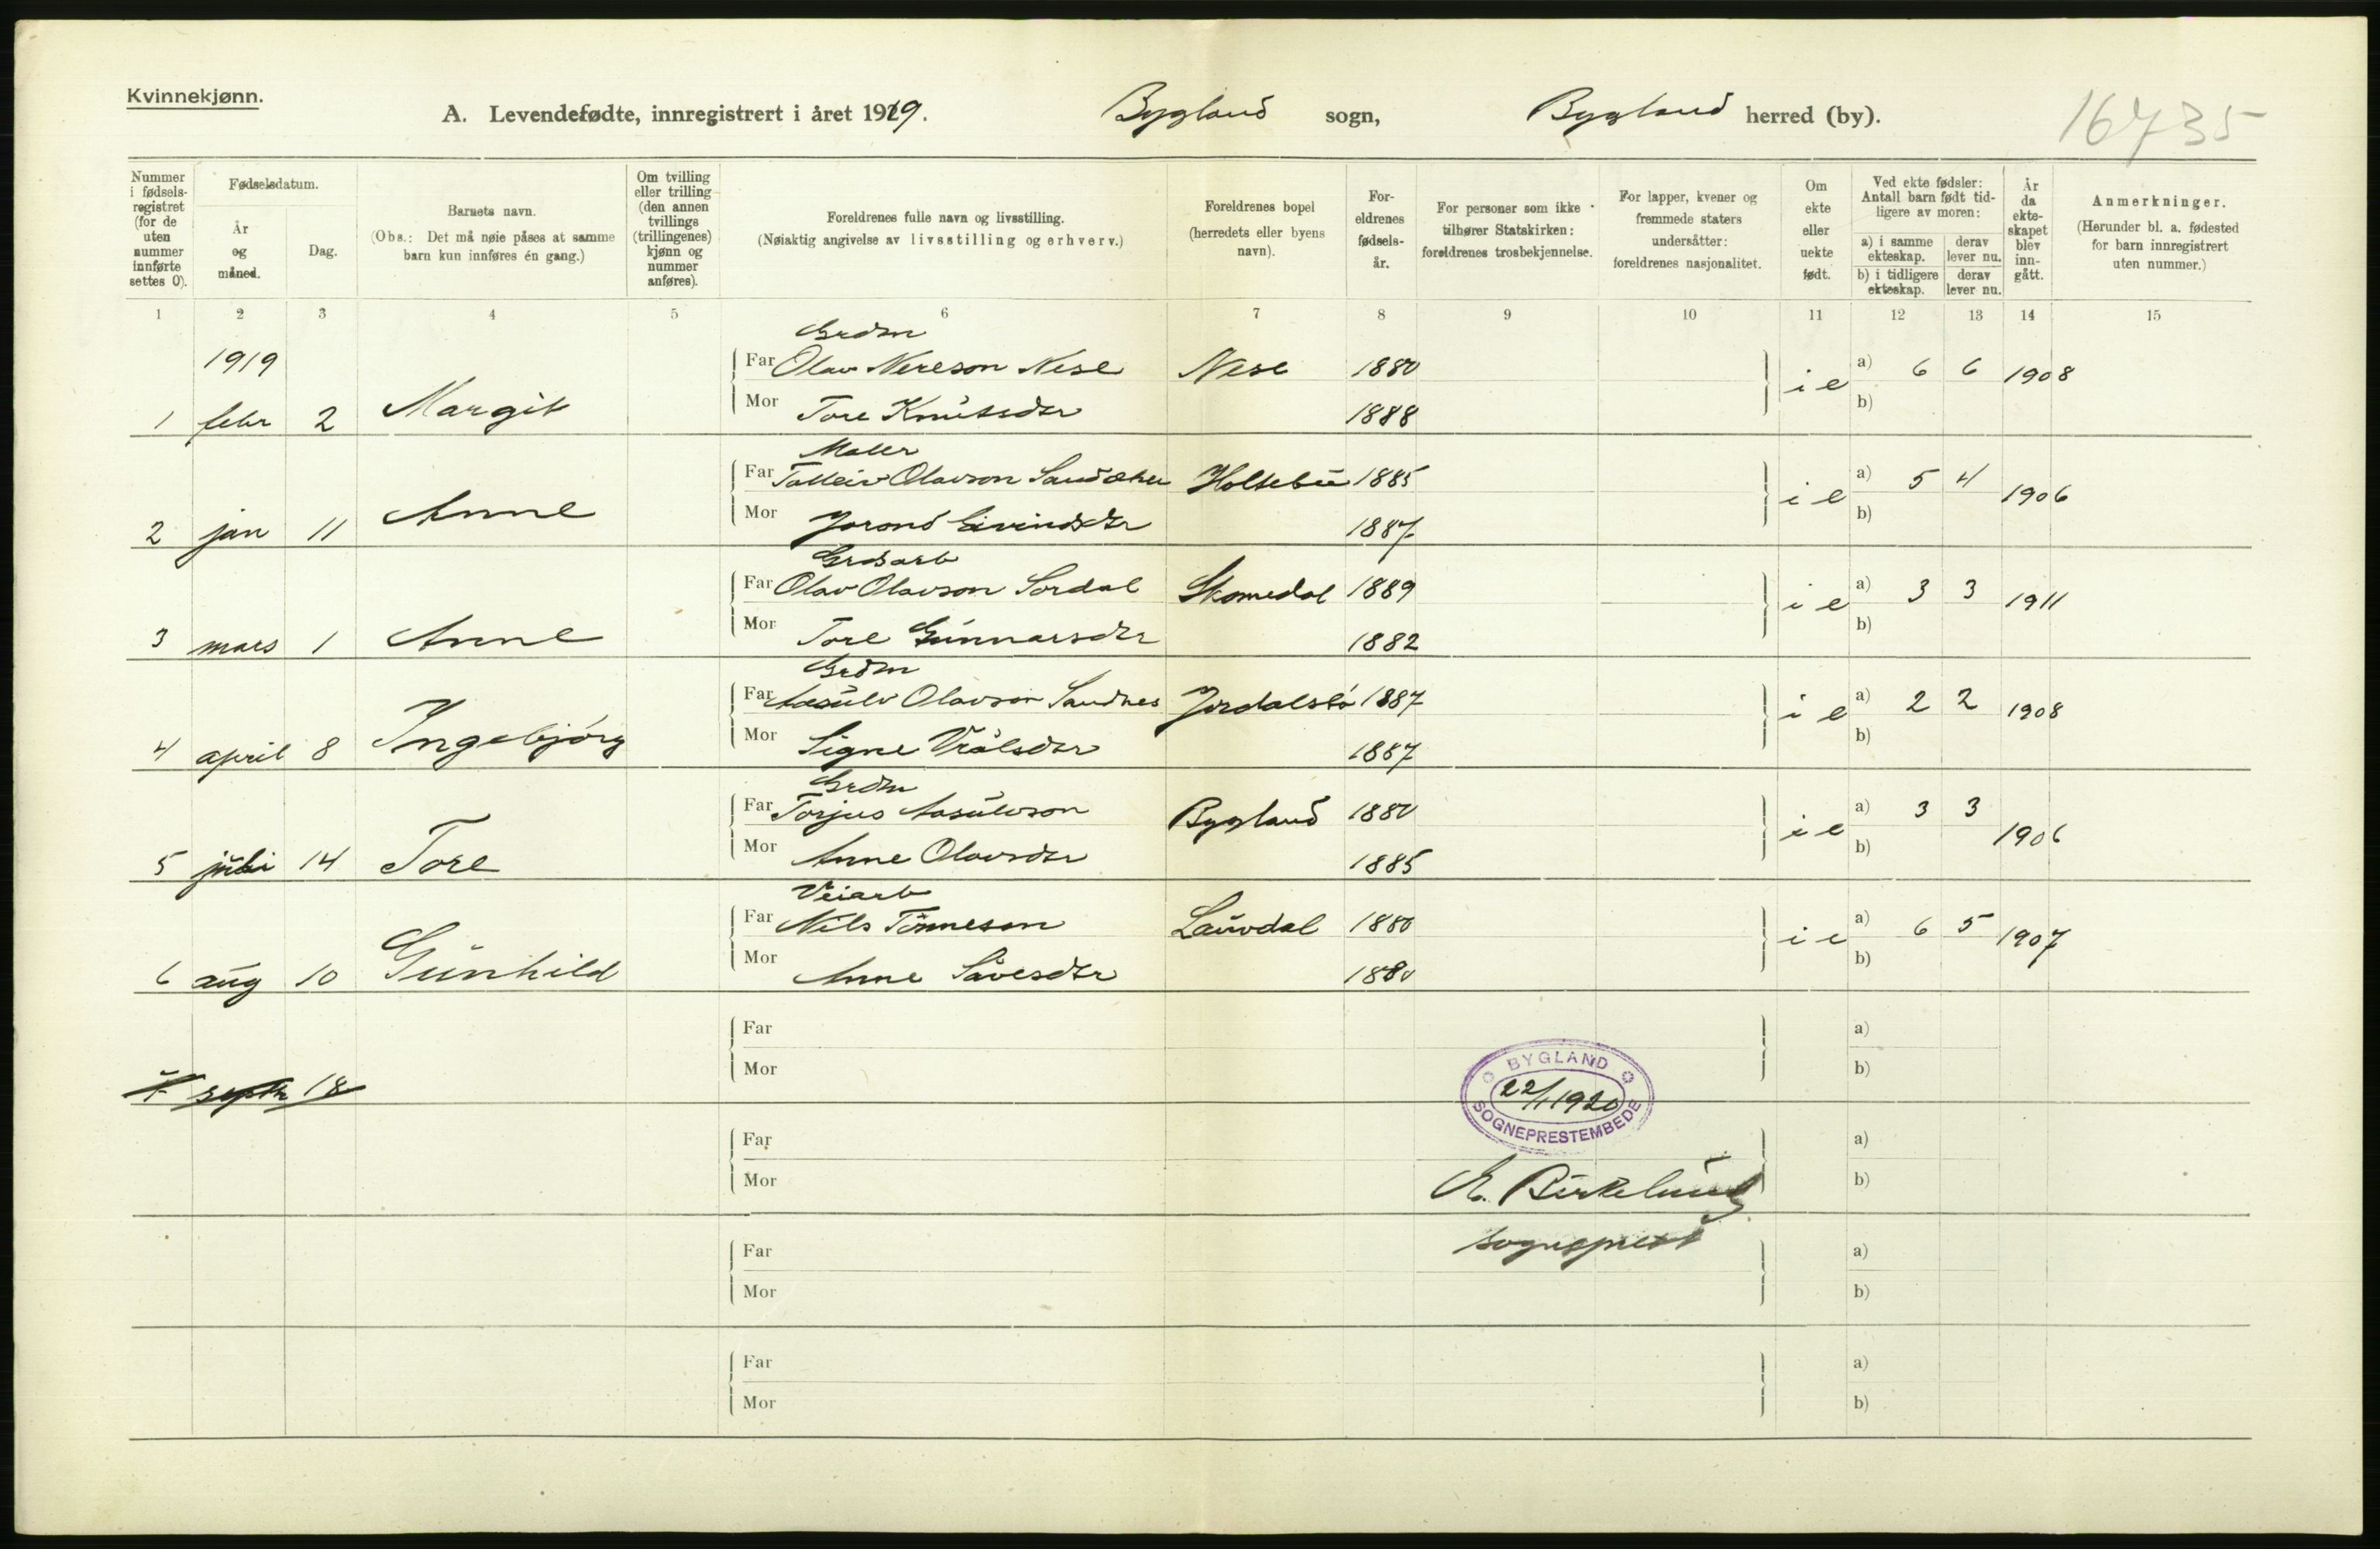 Kvinnekjønn.
A. Levendefødte, innregistrert i året 1919.
Bygland sogn, Bygland herred (by).
16735
Nummer i fødsels-registret (for de uten nummer innførte settes 0).
Fødselsdatum.
År og måned.
Dag.
Barnets navn.
(Obs.: Det må nøie påses at samme barn kun innføres én gang.)
Om tvilling eller trilling (den annen tvillings (trillingenes) kjønn og nummer anføres).
Foreldrenes fulle navn og livsstilling.
(Nøiaktig angivelse av livsstilling og erhverv.)
Foreldrenes bopel (herredets eller byens navn).
For-eldrenes fødsels-år.
For personer som ikke tilhører Statskirken: foreldrenes trosbekjennelse.
For lapper, kvener og fremmede staters undersåtter: foreldrenes nasjonalitet.
Om ekte eller uekte født.
Ved ekte fødsler: Antall barn født tid-ligere av moren:
a) i samme ekteskap. derav lever nu.
b) i tidligere ekteskap. derav lever nu.
År da ekte-skapet blev inn-gått.
Anmerkninger.
(Herunder bl. a. fødested for barn innregistrert uten nummer.)
1 2 3 4 5 6 7 8 9 10 11 12 13 14 15
Grdm
1919 Far Olav Nereson Nese Nese 1880 i e a) 6 6 1908
1 febr 2 Margit Mor Tore Knutsdtr 1888 b)
Maler
Far Talleiv Olavson Sandåker Holtebu 1885 i e a) 5 4 1906
2 jan 11 Anne Mor Jorond Eivindsdtr 1887 b)
Grdsarb
Far Olav Olavson Sordal Skomedal 1889 i e a) 3 3 1911
3 mars 1 Anne Mor Tore Gunnarsdtr 1882 b)
Grdm
Far Aasulv Olavson Sandnes Jordalsbø 1887 i e a) 2 2 1908
4 april 8 Ingebjörg Mor Signe Vrålsdtr 1887 b)
Grdm
Far Torjus Aasulvson Bygland 1880 i e a) 3 3 1906
5 juli 14 Tore Mor Anne Olavsdtr 1885 b)
Veiarb
Far Nils Tönneson Lauvdal 1880 i e a) 6 5 1907
6 aug 10 Gunhild Mor Anne Såvesdtr 1880 b)
Far a)
Mor b)
7 septr 18
BYGLAND
22/1 1920
SOGNEPRESTEMBEDE
Far a)
Mor b)
E. Birkelund
sogneprest
Far a)
Mor b)
Far a)
Mor b)